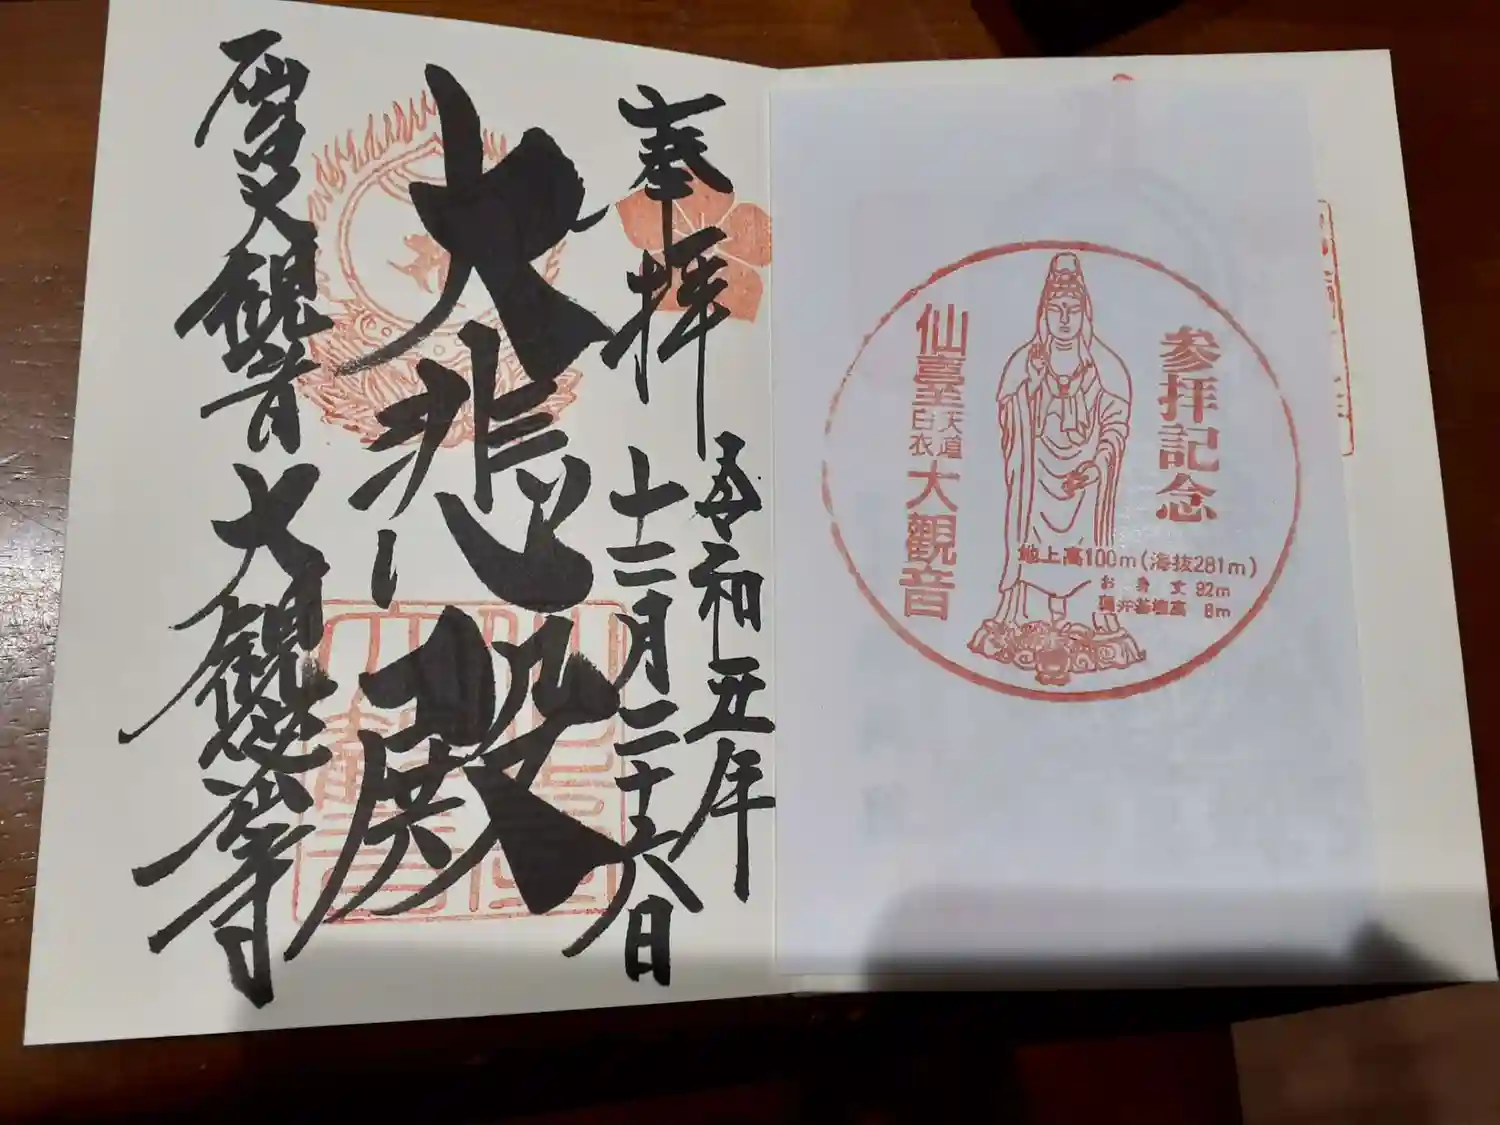 参拝記念
仙臺天道白衣大觀音
地上高100m(海抜281m)
お身丈 92m
奉拝
令和五年
十二月二十六日
大悲殿
仙台大観音
大観密寺